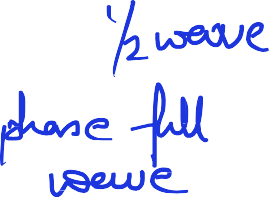 1/2 wave
phase full
wave